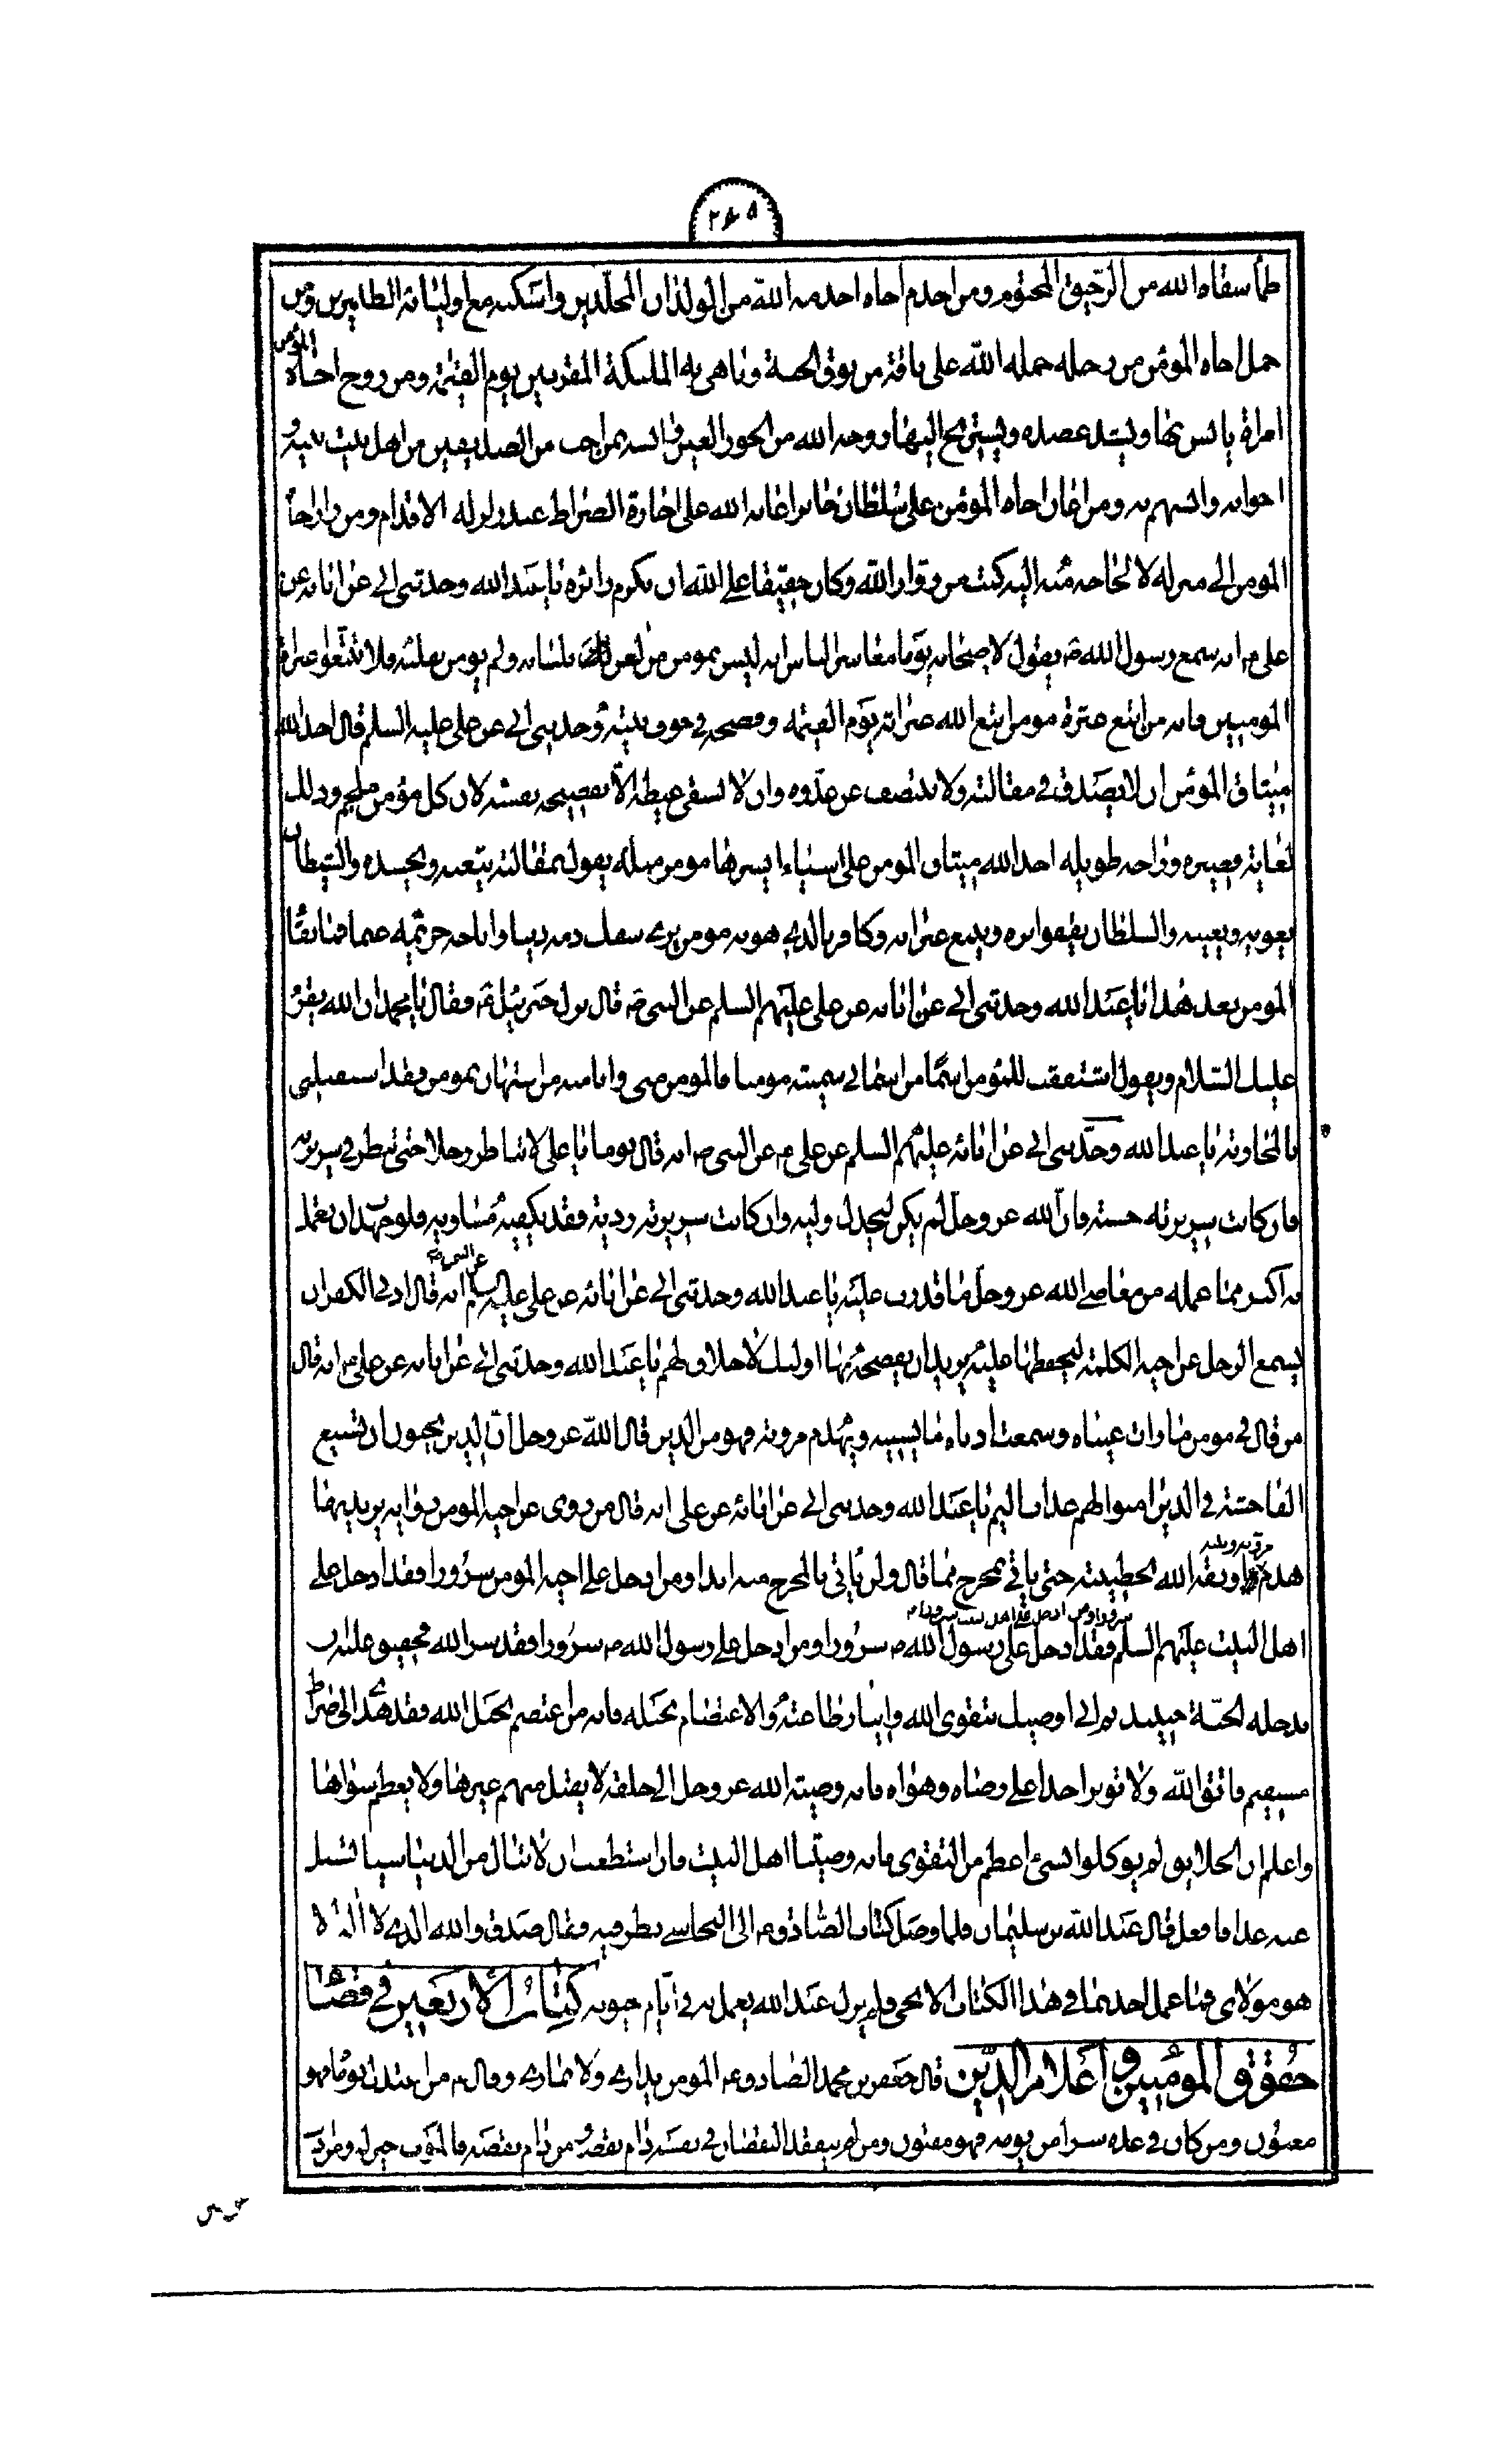 ۲۶۵
ظمأ سقاه الله من الرحيق المختوم ومن اخدم اخاه اخدمه الله من الولدان المخلدين واسكنه مع اوليائه الطاهرين ومن
حمل اخاه المؤمن من رحله حمله الله على ناقة من نوق الجنة وباهى به الملئكة المقربين يوم القيمة ومن زوج اخاه المؤمن
امراة يانس بها ويشد عضده ويستريح اليها زوجه الله من الحور العين وانسه بمن احب من الصديقين من اهل بيت نبيه و
اخوانه وانسهم به ومن اعان اخاه المؤمن على سلطان جائر اعانه الله على اجازة الصراط عند زلزلة الاقدام ومن زار اخاه
المومن الى منزله لا لحاجة منه اليه كتب من زوار الله وكان حقيقا على الله ان يكرم زائره يا عبد الله وحدثنى ابي عن ابائه عن
على م انه سمع رسول الله ص يقول لاصحابه يوما معاشر الناس انه ليس بمومن من امن بلسانه ولم يومن بقلبه فلا تتبعوا عثرات
المومنين فانه من اتبع عثرة مومن اتبع الله عثراته يوم القيمة وفضحه في جوف بيته وحدثنى ابي عن على عليه السلم قال اخذ الله
ميثاق المؤمن ان لا يصدق في مقالته ولا ينتصف من عدوه وان لا يشفى غيظه الا بفضيحة نفسه لان كل مؤمن ملجم وذلك
لغاية قصيرة وراحة طويلة اخذ الله ميثاق المومن على اشياء ايسرها مومن مثله يقول بمقالته يتعبه ويحسده والشيطان
يغويه ويعينه والسلطان يقفو اثره ويتبع عثراته وكافر بالذي هو به مومن يرى سفك دمه دينا واباحة حريمه غنما فما بقاء
المومن بعد هذا يا عبد الله وحدثنى ابي عن ابائه عن على عليهم السلم عن النبى ص قال نزل جبرئيل ع فقال يا محمد ان الله يقرء
عليك السلام ويقول اشتققت للمؤمن اسما من اسمائي سميته مومنا فالمومن منى وانا منه من استهان بمومن فقد استقبلنى
بالمحاربة يا عبد الله وحدثنى ابي عن ابائه عليهم السلم عن على م عن النبى ص انه قال يوما يا على لا تناظر رجلا حتى تنظر في سريرته
فان كانت سريرته حسنة فان الله عز وجل لم يكن ليخذل وليه وان كانت سريرته ردية فقد يكفيه مساويه فلو جهدت ان تعمل
به اكثر مما عمله من معاصى الله عز وجل ما قدرت عليه يا عبد الله وحدثنى ابي عن ابائه عن على عليه السلم عن النبى ص انه قال ادنى الكفر ان
يسمع الرجل عن اخيه الكلمة ليحفظها عليه يريد ان يفضحه بها اولئك لا خلاق لهم يا عبد الله وحدثنى ابي عن ابائه عن على م انه قال
من قال في مومن ما رات عيناه وسمعت اذناه ما يشينه ويهدم مروته فهو من الذين قال الله عز وجل ان الذين يحبون ان تشيع
الفاحشة في الذين امنوا لهم عذاب اليم يا عبد الله وحدثنى ابي عن ابائه عن على انه قال من روى عن اخيه المومن رواية يريد بها
هدم مروته وثلبه اوبقه الله بخطيئته حتى ياتي بمخرج مما قال ولن ياتي بالمخرج منه ابدا ومن ادخل على اخيه المومن سرورا فقد ادخل على
اهل البيت عليهم السلم سرورا ومن ادخل على اهل البيت سرورا فقد ادخل على رسول الله ص سرورا ومن ادخل على رسول الله ص سرورا فقد سر الله فحقيق عليه ان
يدخله الجنة حينئذ ثم اني اوصيك بتقوى الله وايثار طاعته والاعتصام بحبله فانه من اعتصم بحبل الله فقد هدى الى صراط
مستقيم فاتق الله ولا توثر احدا على رضاه وهواه فانه وصية الله عز وجل الى خلقه لا يقبل منهم غيرها ولا يعظم سواها
واعلم ان الخلايق لم يوكلوا بشئ اعظم من التقوى فانه وصيتنا اهل البيت فان استطعت ان لا تنال من الدنيا شيئا تسئل
عنه غدا فافعل قال عبد الله بن سليمان فلما وصل كتاب الصادق ع الى النجاشي نظر فيه وقال صدق والله الذى لا اله الا
هو مولاى فما عمل احد بما في هذا الكتاب الا نجى فلم يزل عبد الله يعمل به في ايام حيوته كتاب الاربعين في قضاء
حقوق المؤمنين واعلام الدين قال جعفر بن محمد الصادق ع المومن يدارى ولا يمارى وقال م من اعتدل يوماه فهو
مغبون ومن كان في غده شرا من يومه فهو مفتون ومن لم يتفقد النقصان في نفسه دام نقصه ومن دام نقصه فالموت خير له ومن